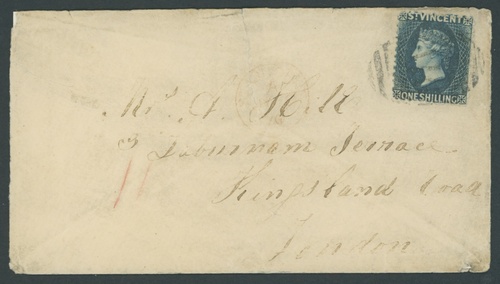 ST VINCENT
ONE SHILLING
Mrs A. Hill
3 Laburnam Terrace
Kingsland Road
London
11